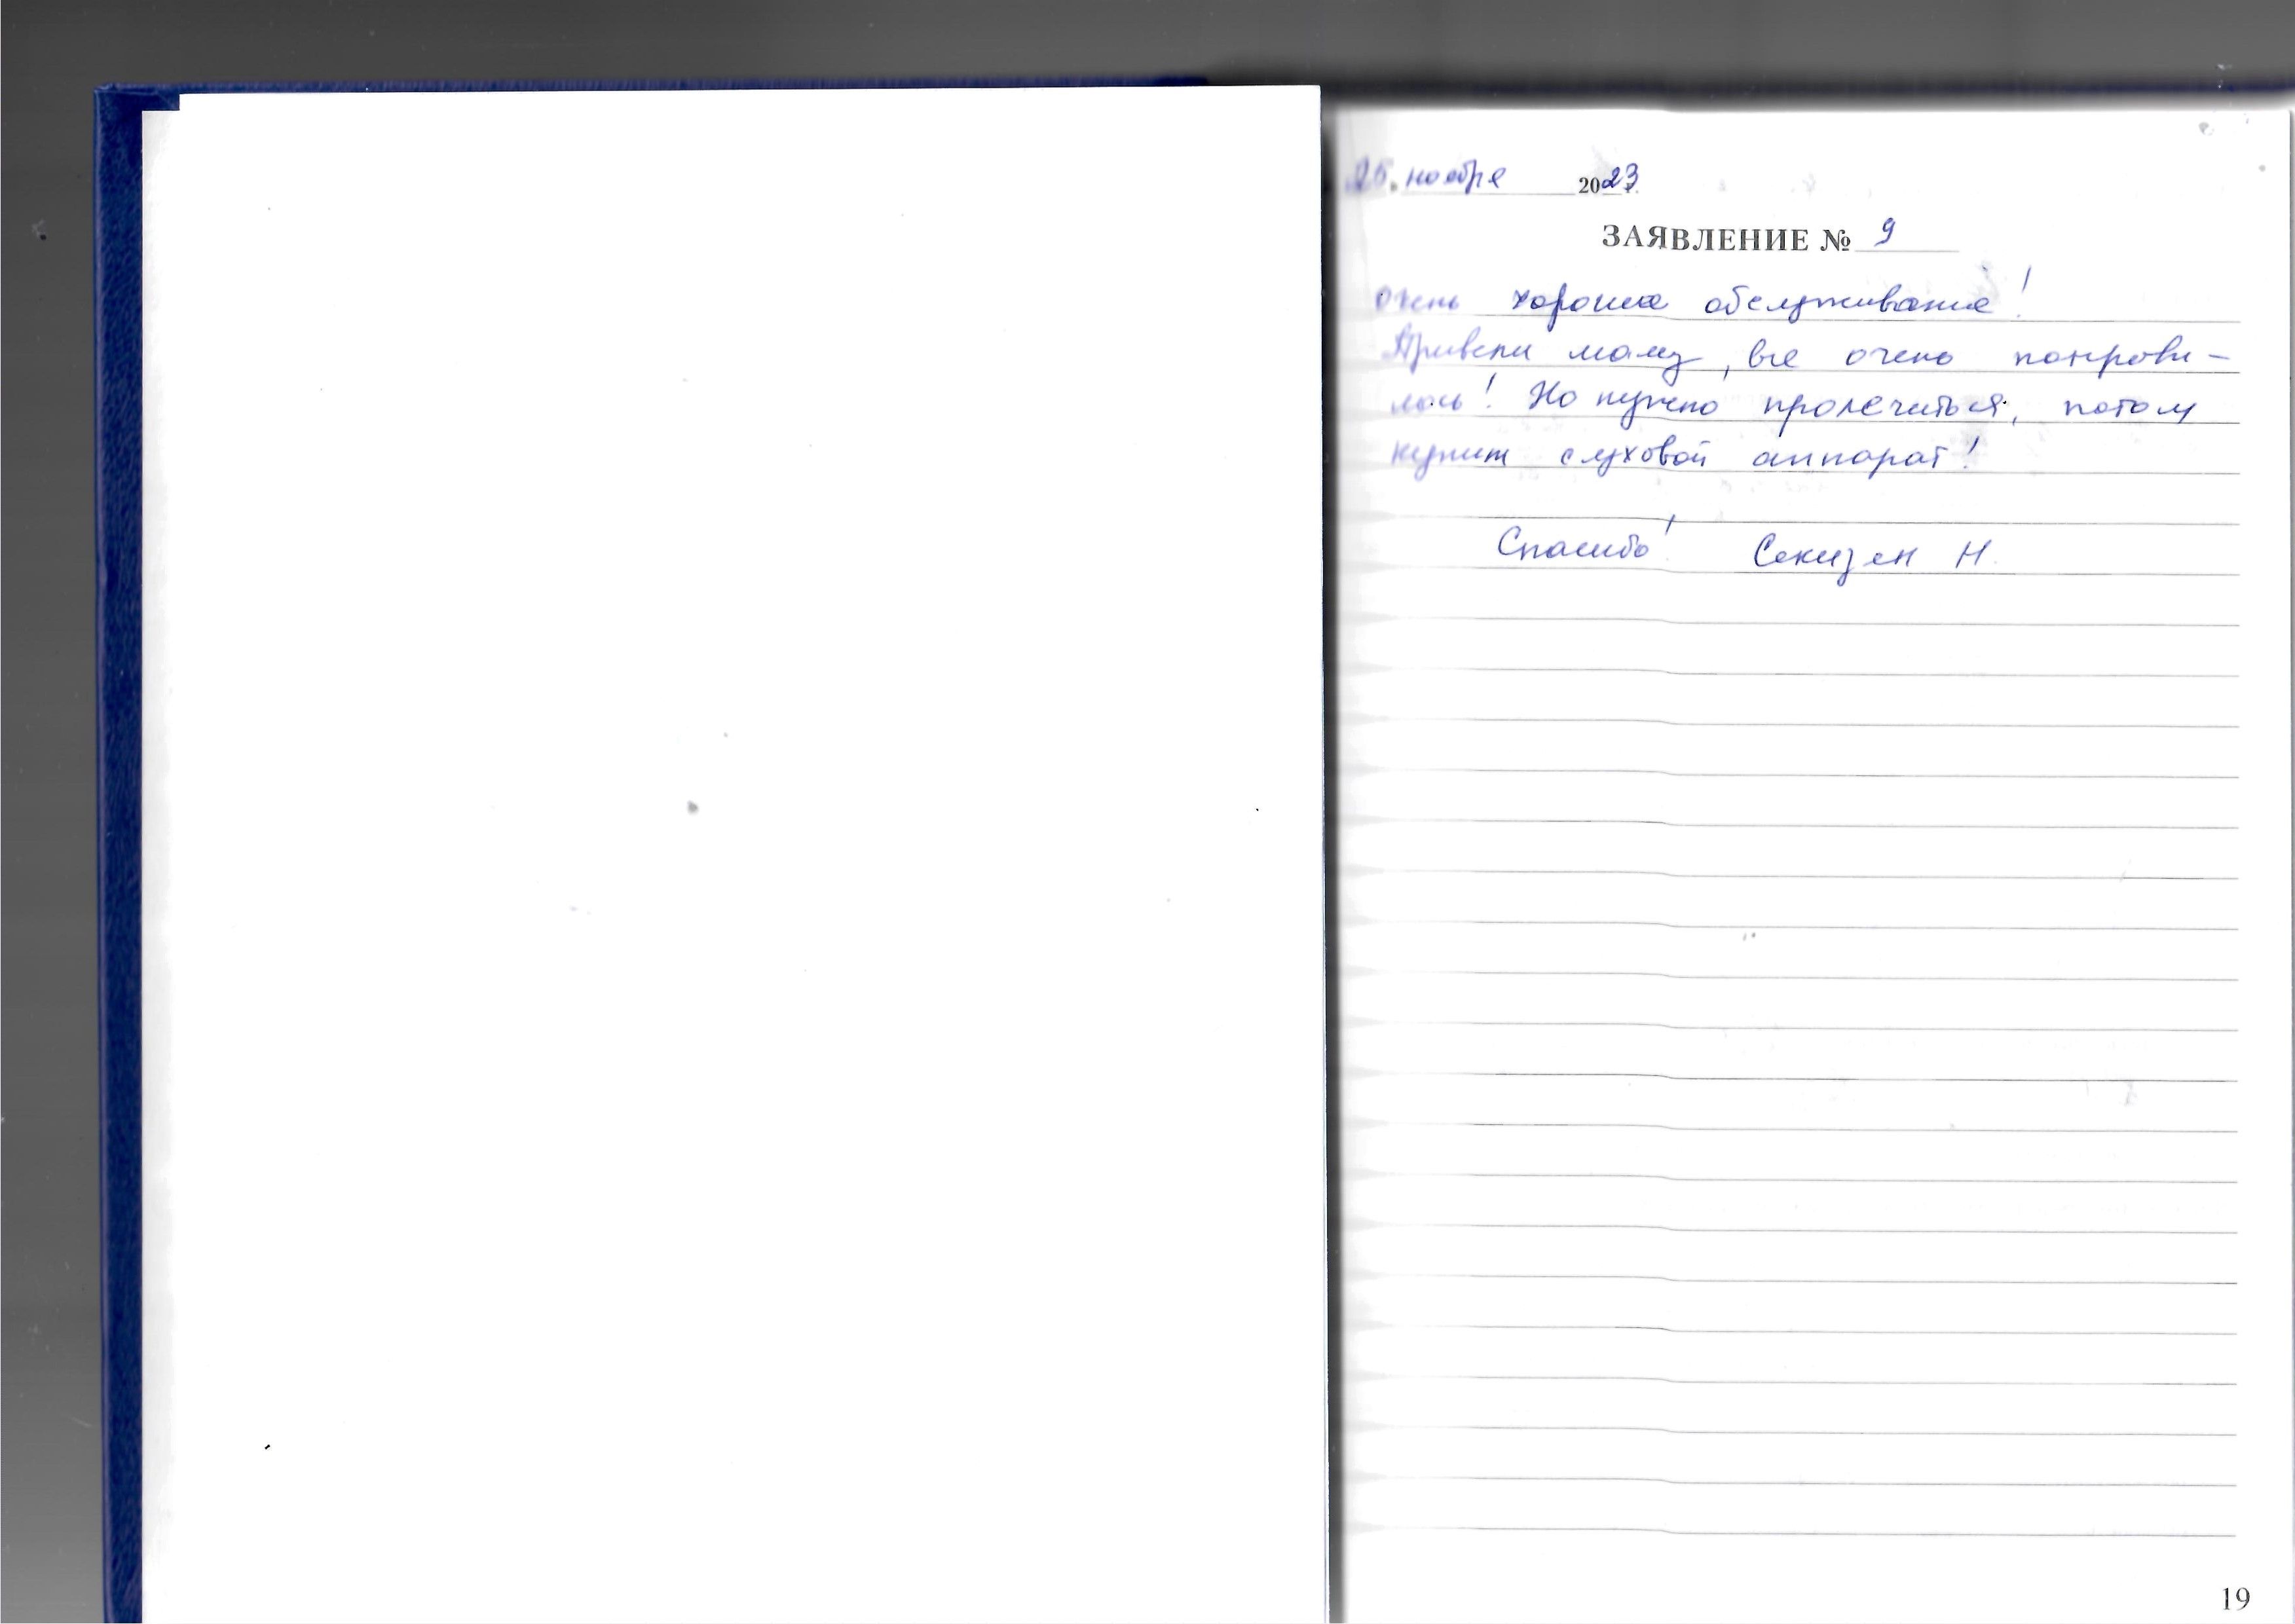 25. ноября 2023 г.
ЗАЯВЛЕНИЕ № 9
Очень хорошее обслуживание!
Привели маму, все очень понрави-
лось! Но нужно пролечиться, потом
купим слуховой аппарат!
Спасибо! Секизен Н.
19